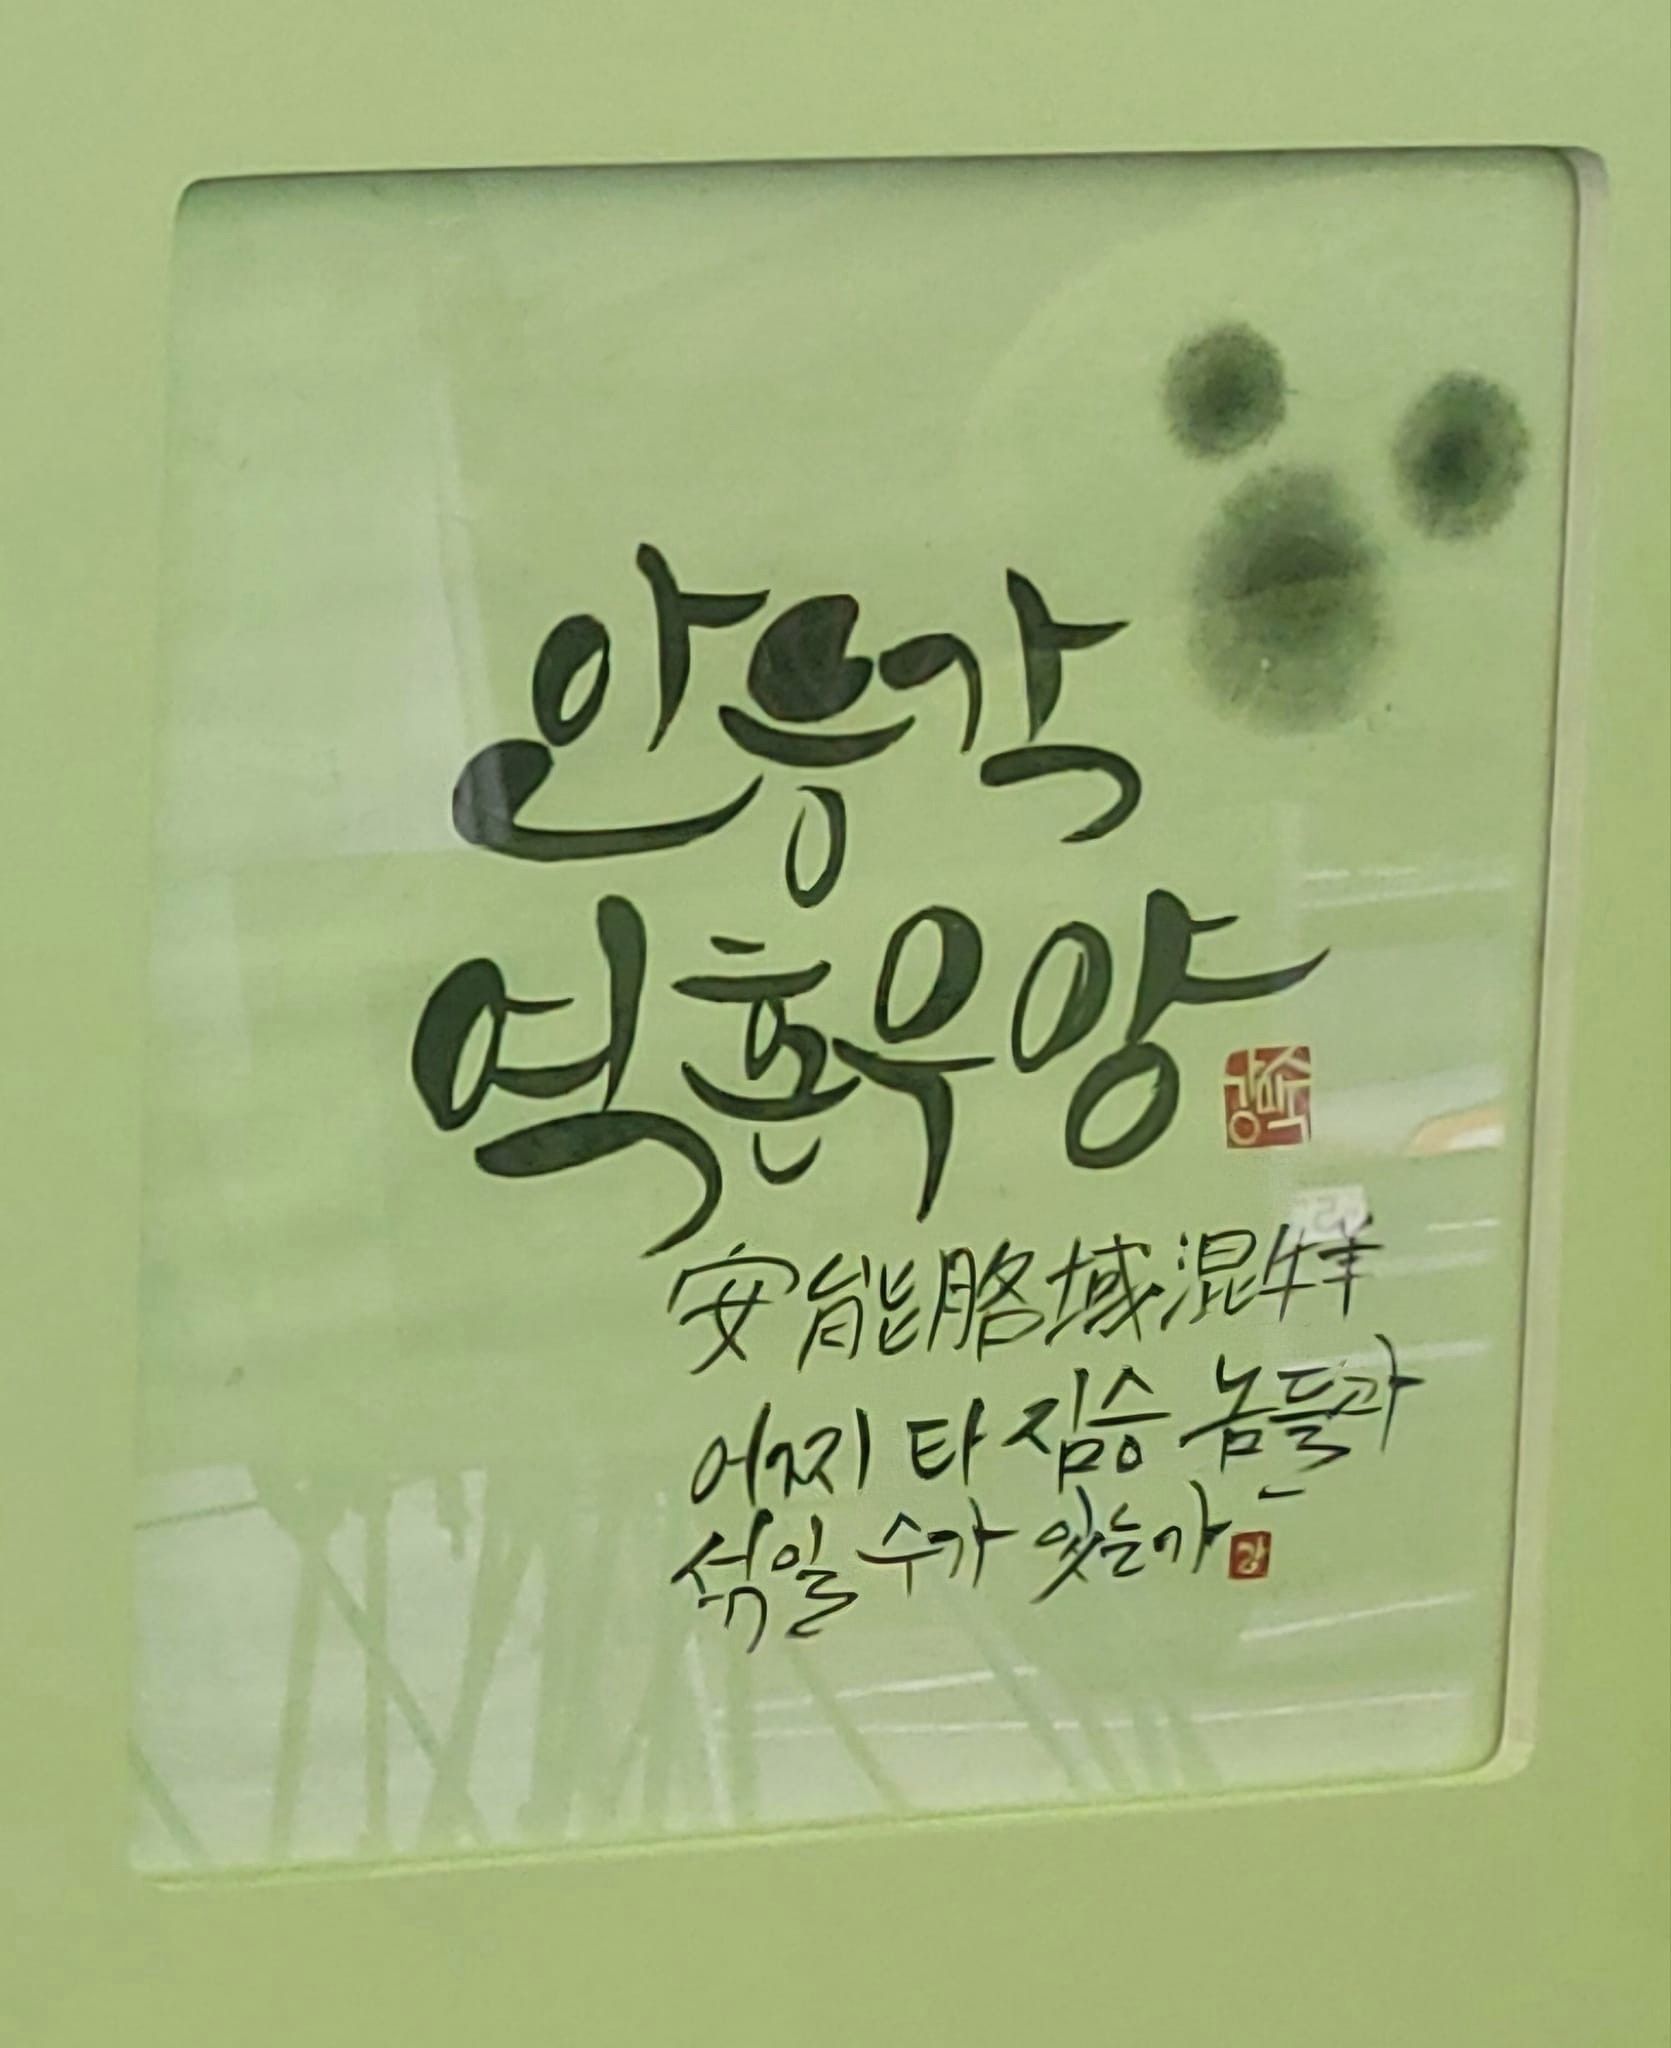 안능각
역혼우양
安能胳域混牛羊
어찌 타 짐승 놈들과
섞일 수가 있는가
강